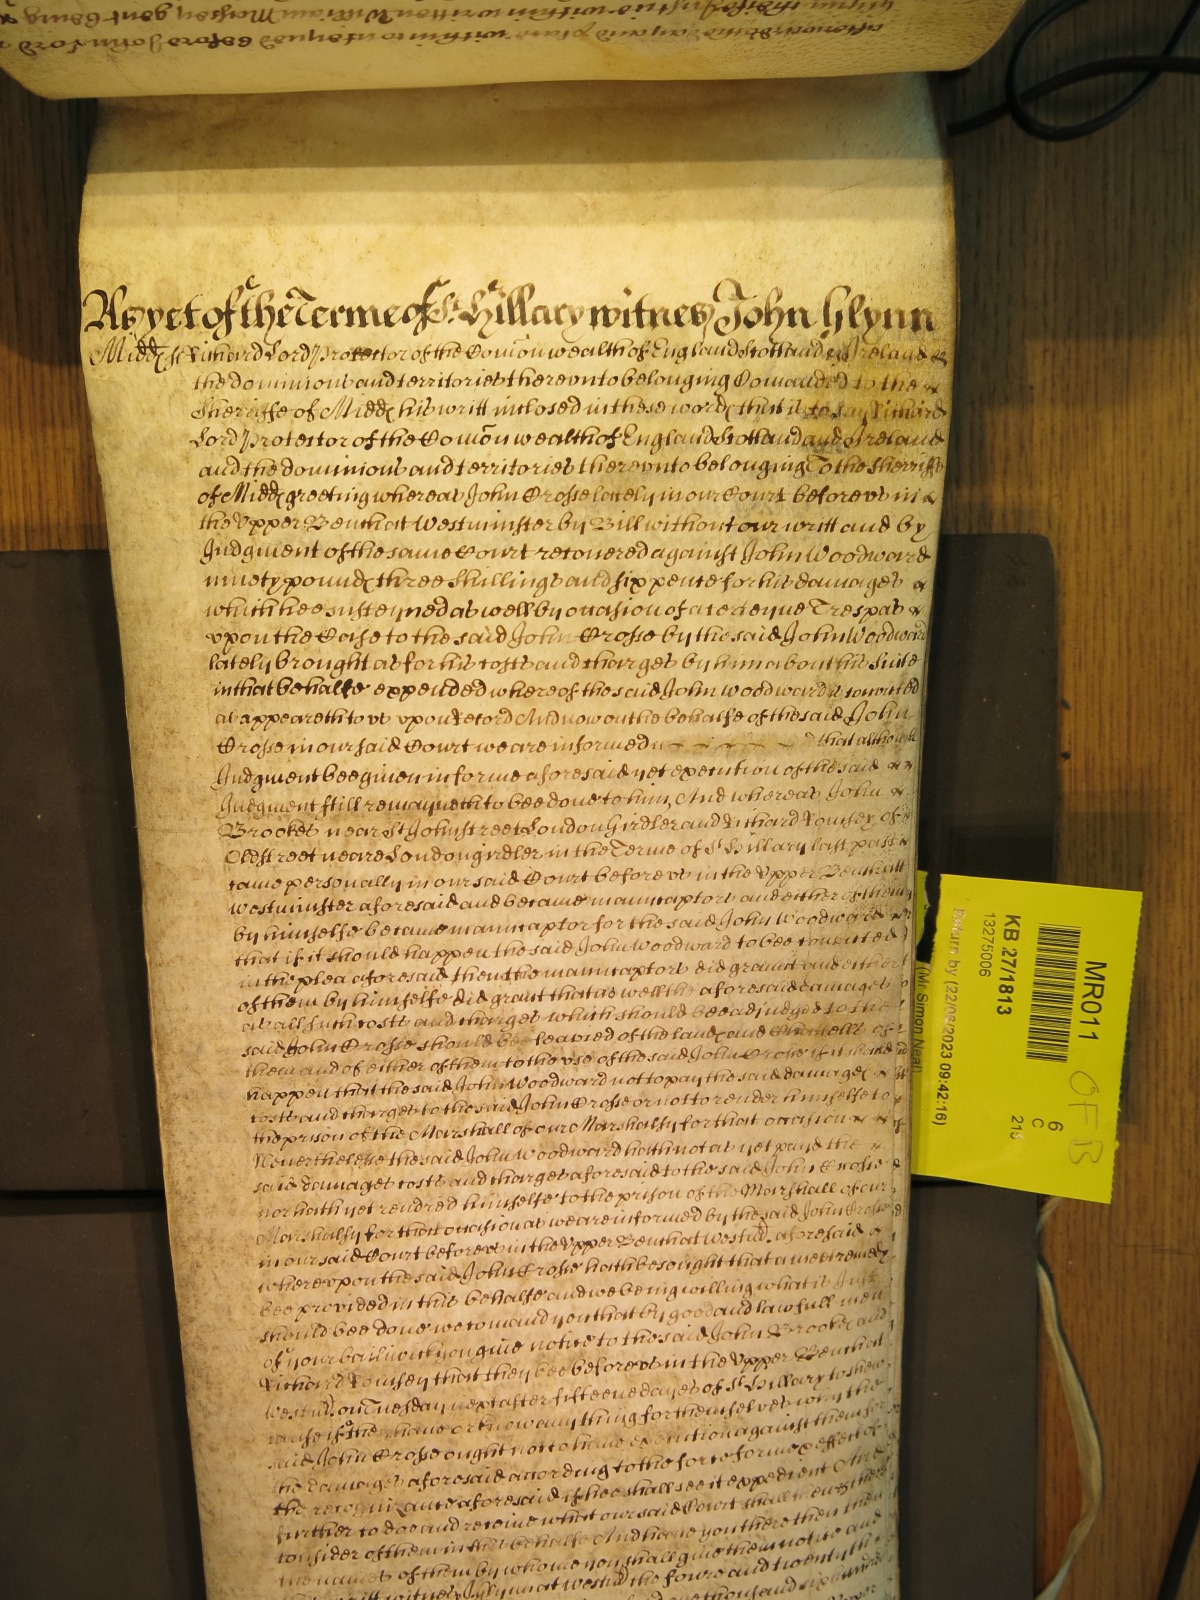 As yet of the Terme of St. Hillary witnes John Glynn
Midd ss Richard Lord Protector of the Comon wealth of England Scotland & Ireland &
the dominions and territories therevnto belonging Comanded to the
Sheriffe of Midd his writt inclosed in these word that is to say Richard
Lord Protector of the Comon wealth of England Scotland and Ireland
and the dominions and territories therevnto belonging To the Sherriffe
of Midd greeting whereas John Crosse lately in our Court before vs in
the Vpper Bench at Westminster by Bill without our writt and by
Judgment of the same Court recouered against John Woodward
ninety pound three Shillings and six pence for his damages
which hee susteyned as well by occasion of a certeyne Trespas
vpon the Case to the said John Crosse by the said John Woodward
lately brought as for his costs and charges by him about his Suite
in that behalfe expended whereof the said John Woodward is convicted
as appeareth to vs vpon Record And now on the behalfe of the said John
Crosse in our said Court we are informed that although
Judgment bee giuen in forme aforesaid yet execution of the said
Judgment still remayneth to bee done to him And whereas John
Brookes near St Johnstreet London Girdler and Richard Romsey of
Oldstreet neare London girdler in the Terme of St Hillary last past
came personally in our said Court before vs in the Vpper Bench att
Westminster aforesaid and became mainucaptors and either of them
by himselfe became mainucaptor for the said John Woodward
that if it should happen the said John Woodward to bee convicted
in the plea aforesaid then the mainucaptors did graunt and either
of them by himselfe did grant that as well the aforesaid damages
as all such costs and charges which should bee adjudged to the
said John Crosse should bee leavied of the land and Chattells of
them and of either of them to the vse of the said John Crosse if it should
happen that the said John Woodward not to pay the said damages
costs and charges to the said John Crosse or not to render himselfe to
the prison of the Marshall of our Marshalsy for that occasion
Neverthelesse the said John Woodward hath not as yet payd the
said damages costs and charges aforesaid to the said John Crosse
nor hath yet rendred himselfe to the prison of the Marshall of our
Marshalsy for that occasion as we are informed by the said John Crosse
in our said Court before vs in the Vpper Bench at Westm aforesaid
wherevpon the said John Crosse hath besought that a meet remedy
bee provided in this behalfe and we being willing what is Just
should bee done we comand you that by good and lawfull men
of your bailiwick you giue notice to the said John Brookes and
Richard Romsey that they bee before vs in the Vpper Bench at
Westm on Tuesday next after fifteene dayes of St Hillary to shew
cause if they haue or know any thing for themselves why the
said John Crosse ought not to haue execution against them for
the damages aforesaid according to the force forme & effect of
the recognizance aforesaid if hee shall see it expedient And
further to doe and receiue what our said Court shall
consider of them in this behalfe And haue you there then
the names of them by whome you shall giue them notice and
writt witnes J Glynn at Westm the fowre and twentyth
one thousand six hundred
MR011
KB 27/1813
13275006
Return by (22/03/2023 09:42:16)
(Mr Simon Neal)
6
C
OFB